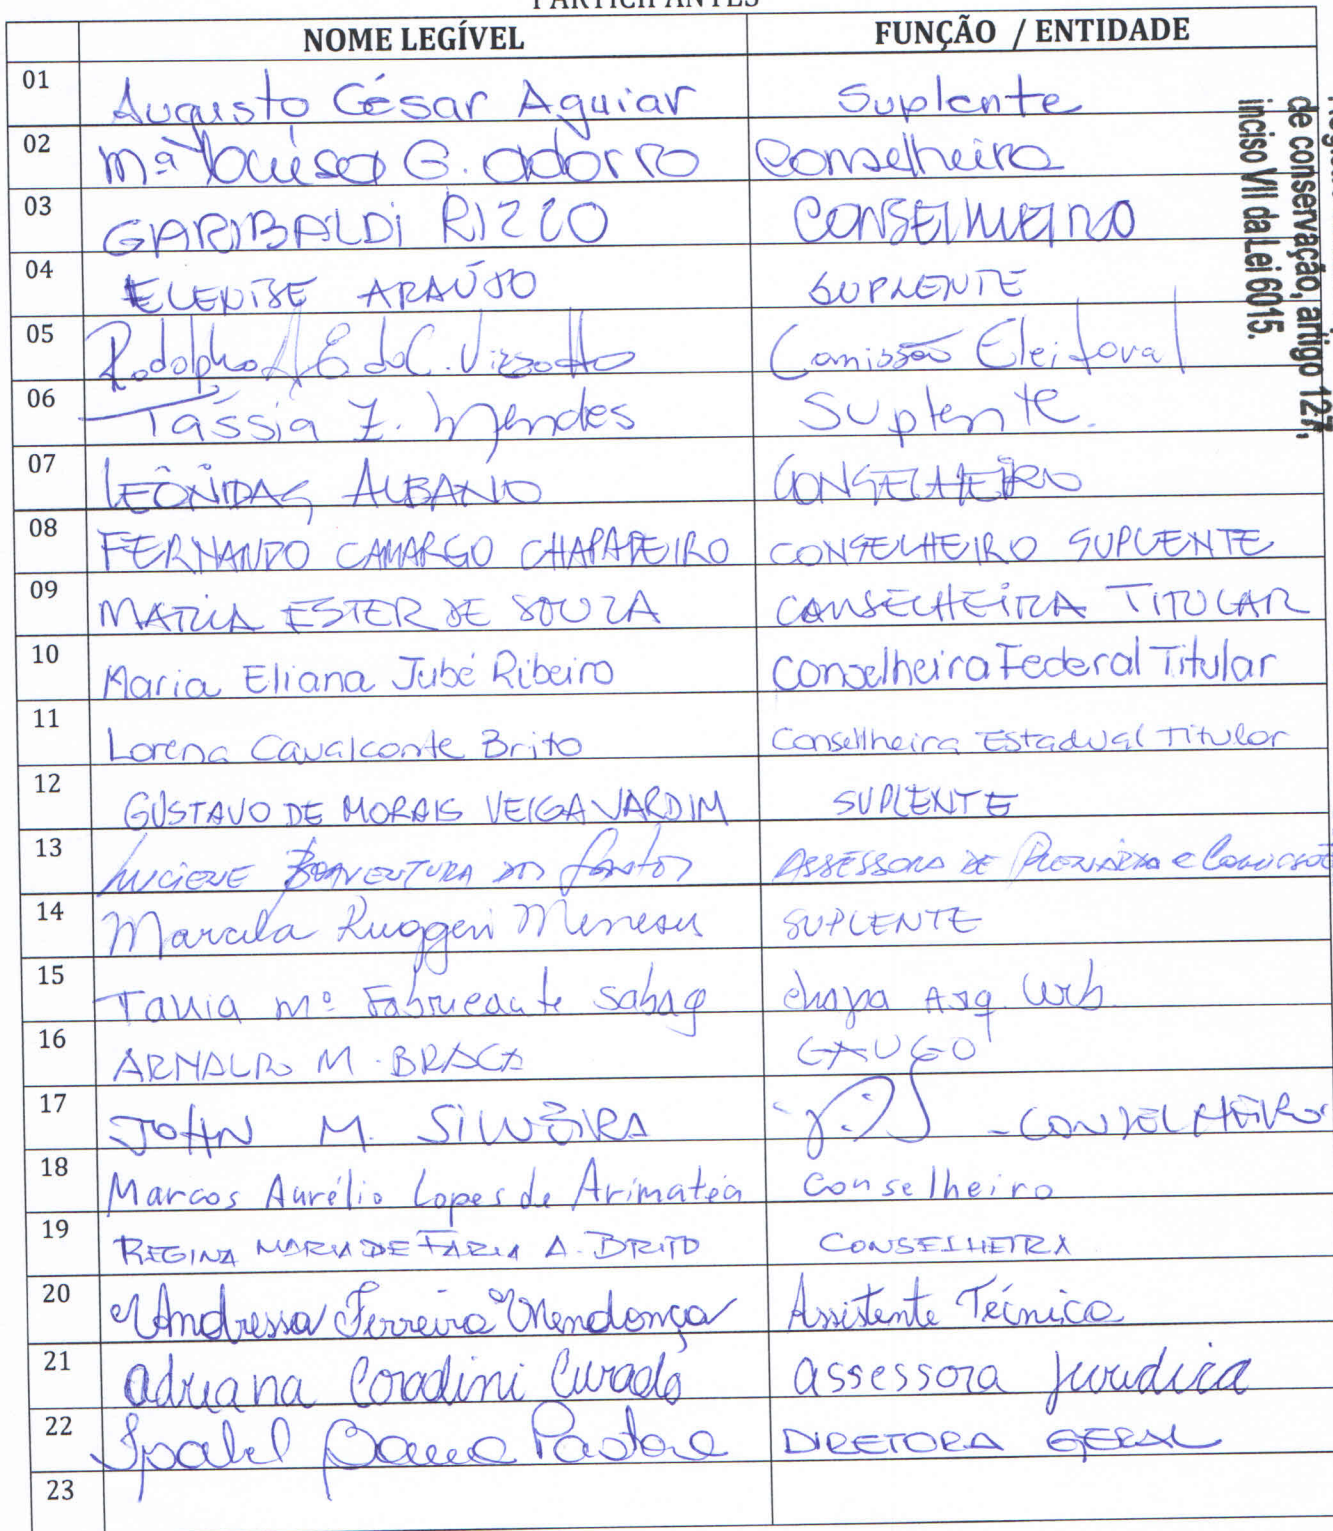 PARTICIPANTES
NOME LEGÍVEL FUNÇÃO / ENTIDADE
01 Augusto César Aguiar Suplente
02 Mª Louisa G. Adorno Conselheira
03 GARIBALDI RIZZO CONSELHEIRO
04 ELENISE ARAÚJO SUPLENTE
05 Rodolpho A E da C. Vizzotto Comissão Eleitoral
06 Tássia Z. Mendes Suplente.
07 LEÔNIDAS ALBANO CONSELHEIRO
08 FERNANDO CAMARGO CHAPADEIRO CONSELHEIRO SUPLENTE
09 MARIA ESTER DE SOUZA CONSELHEIRA TITULAR
10 Maria Eliana Jubé Ribeiro Conselheira Federal Titular
11 Lorena Cavalcante Brito Conselheira Estadual Titular
12 GUSTAVO DE MORAIS VEIGA JARDIM SUPLENTE
13 LUCIENE BOAVENTURA DOS Santos ASSESSORA DE PLENÁRIA e
14 Marcela Ruggeri Meneses SUPLENTE
15 Tania Mª Fabricante Sabag chapa Arq Urb
16 ARNALDO M. BRAGA CAUGO
17 JOHN M. SILVEIRA - CONSELHEIRO
18 Marcos Aurélio Lopes de Arimatéa Conselheiro
19 REGINA MARIA DE FARIA A. BRITO CONSELHEIRA
20 Andressa Ferreira Mendonça Assistente Técnica
21 Adriana Coradini Curado assessora jurídica
22 Isabel Pastore DIRETORA GERAL
23
de conservação, artigo 127,
inciso VII da Lei 6015.